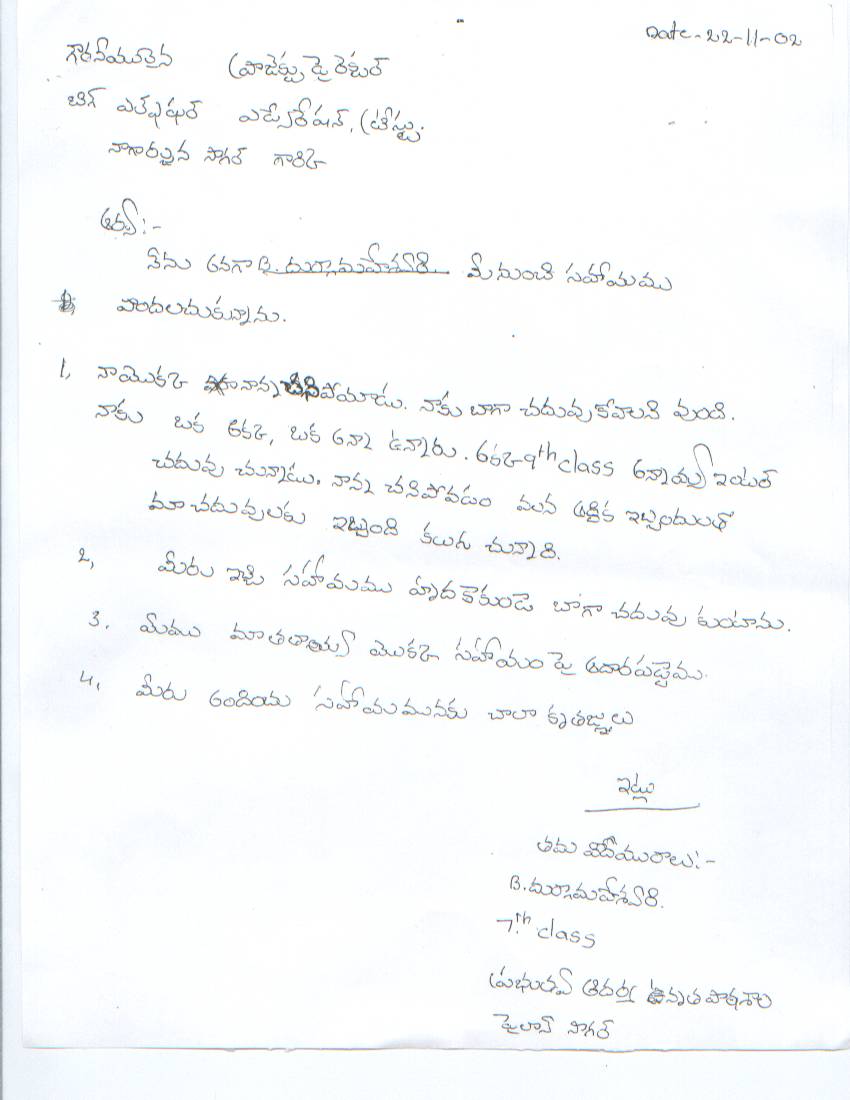 Date-22-11-02
గౌరవనీయులైన ప్రాజెక్టు డైరెక్టర్
బిగ్ ఎడ్యుకేషన్, ట్రస్టు.
నాగార్జున సాగర్ గారికి
అర్జీ:-
నేను అనగా B. దుర్గామహేశ్వరి మీ నుంచి సహాయము
పొందలచుకున్నాను.
1, నాయొక్క నాన్న చనిపోయాడు. నాకు బాగా చదువుకోవాలని వుంది.
నాకు ఒక అక్క, ఒక అన్నా ఉన్నారు. అక్క 9th class అన్నయ్య ఇంటర్
చదువు చున్నాడు. నాన్న చనిపోవడం వలన ఆర్థిక ఇబ్బందులతో
మా చదువులకు ఇబ్బంది కలుగు చున్నాది.
2, మీరు ఇచ్చే సహాయము బాగా చదువు కుంటాను.
3. మేము మా తాతయ్య యొక్క సహాయం పై ఆదారపడ్డెము.
4, మీరు అందియు సహాయమునకు చాలా కృతజ్ఞులు
ఇట్లు
తమ విదేయురాలు:-
B. దుర్గామహేశ్వరి.
7th class
ప్రభుత్వ ఆదర్శ ఉన్నత పాఠశాల
పైలాన్ సాగర్